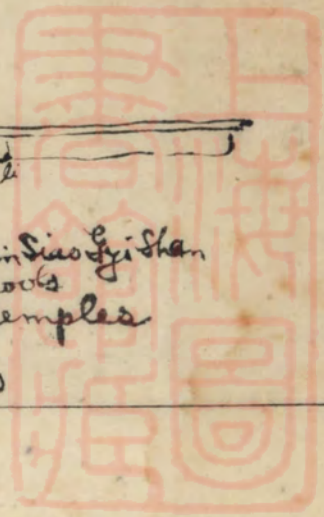 li
in Siao Gyi Shan
ools
emples
上海圖
書館藏